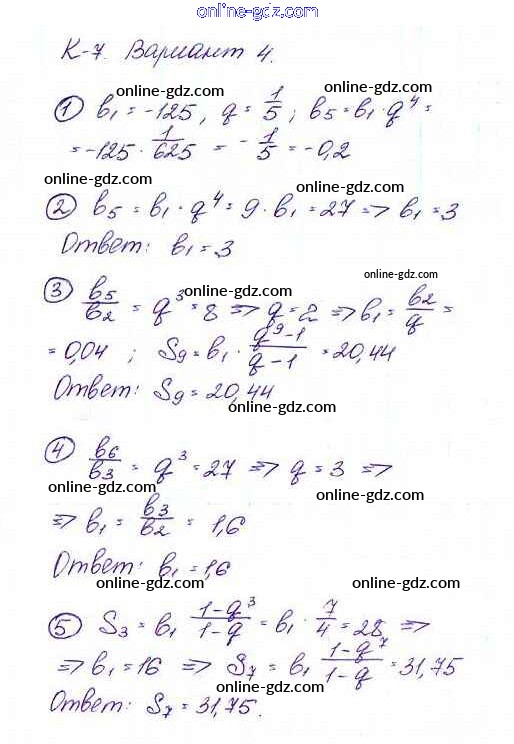 online-gdz.com
К-7. Вариант 4.
online-gdz.com
online-gdz.com
① b₁ = -125, q = 1/5; b₅ = b₁ · q⁴ =
= -125 · 1/625 = -1/5 = -0,2
online-gdz.com
online-gdz.com
② b₅ = b₁ · q⁴ = 9 · b₁ = 27 => b₁ = 3
Ответ: b₁ = 3
online-gdz.com
online-gdz.com
③ b₅/b₂ = q³ = 8 => q = 2 => b₁ = b₂/q =
= 0,04 ; S₉ = b₁ · (q⁹-1)/(q-1) = 20,44
online-gdz.com
Ответ: S₉ = 20,44
online-gdz.com
online-gdz.com
④ b₆/b₃ = q³ = 27 => q = 3 =>
online-gdz.com
online-gdz.com
=> b₁ = b₃/b₂ = 1,6
Ответ: b₁ = 1,6
online-gdz.com
online-gdz.com
⑤ S₃ = b₁ (1-q³)/(1-q) = b₁ · 7/4 = 28 =>
online-gdz.com
online-gdz.com
=> b₁ = 16 => S₇ = b₁ (1-q⁷)/(1-q) = 31,75
online-gdz.com
Ответ: S₇ = 31,75.
online-gdz.com